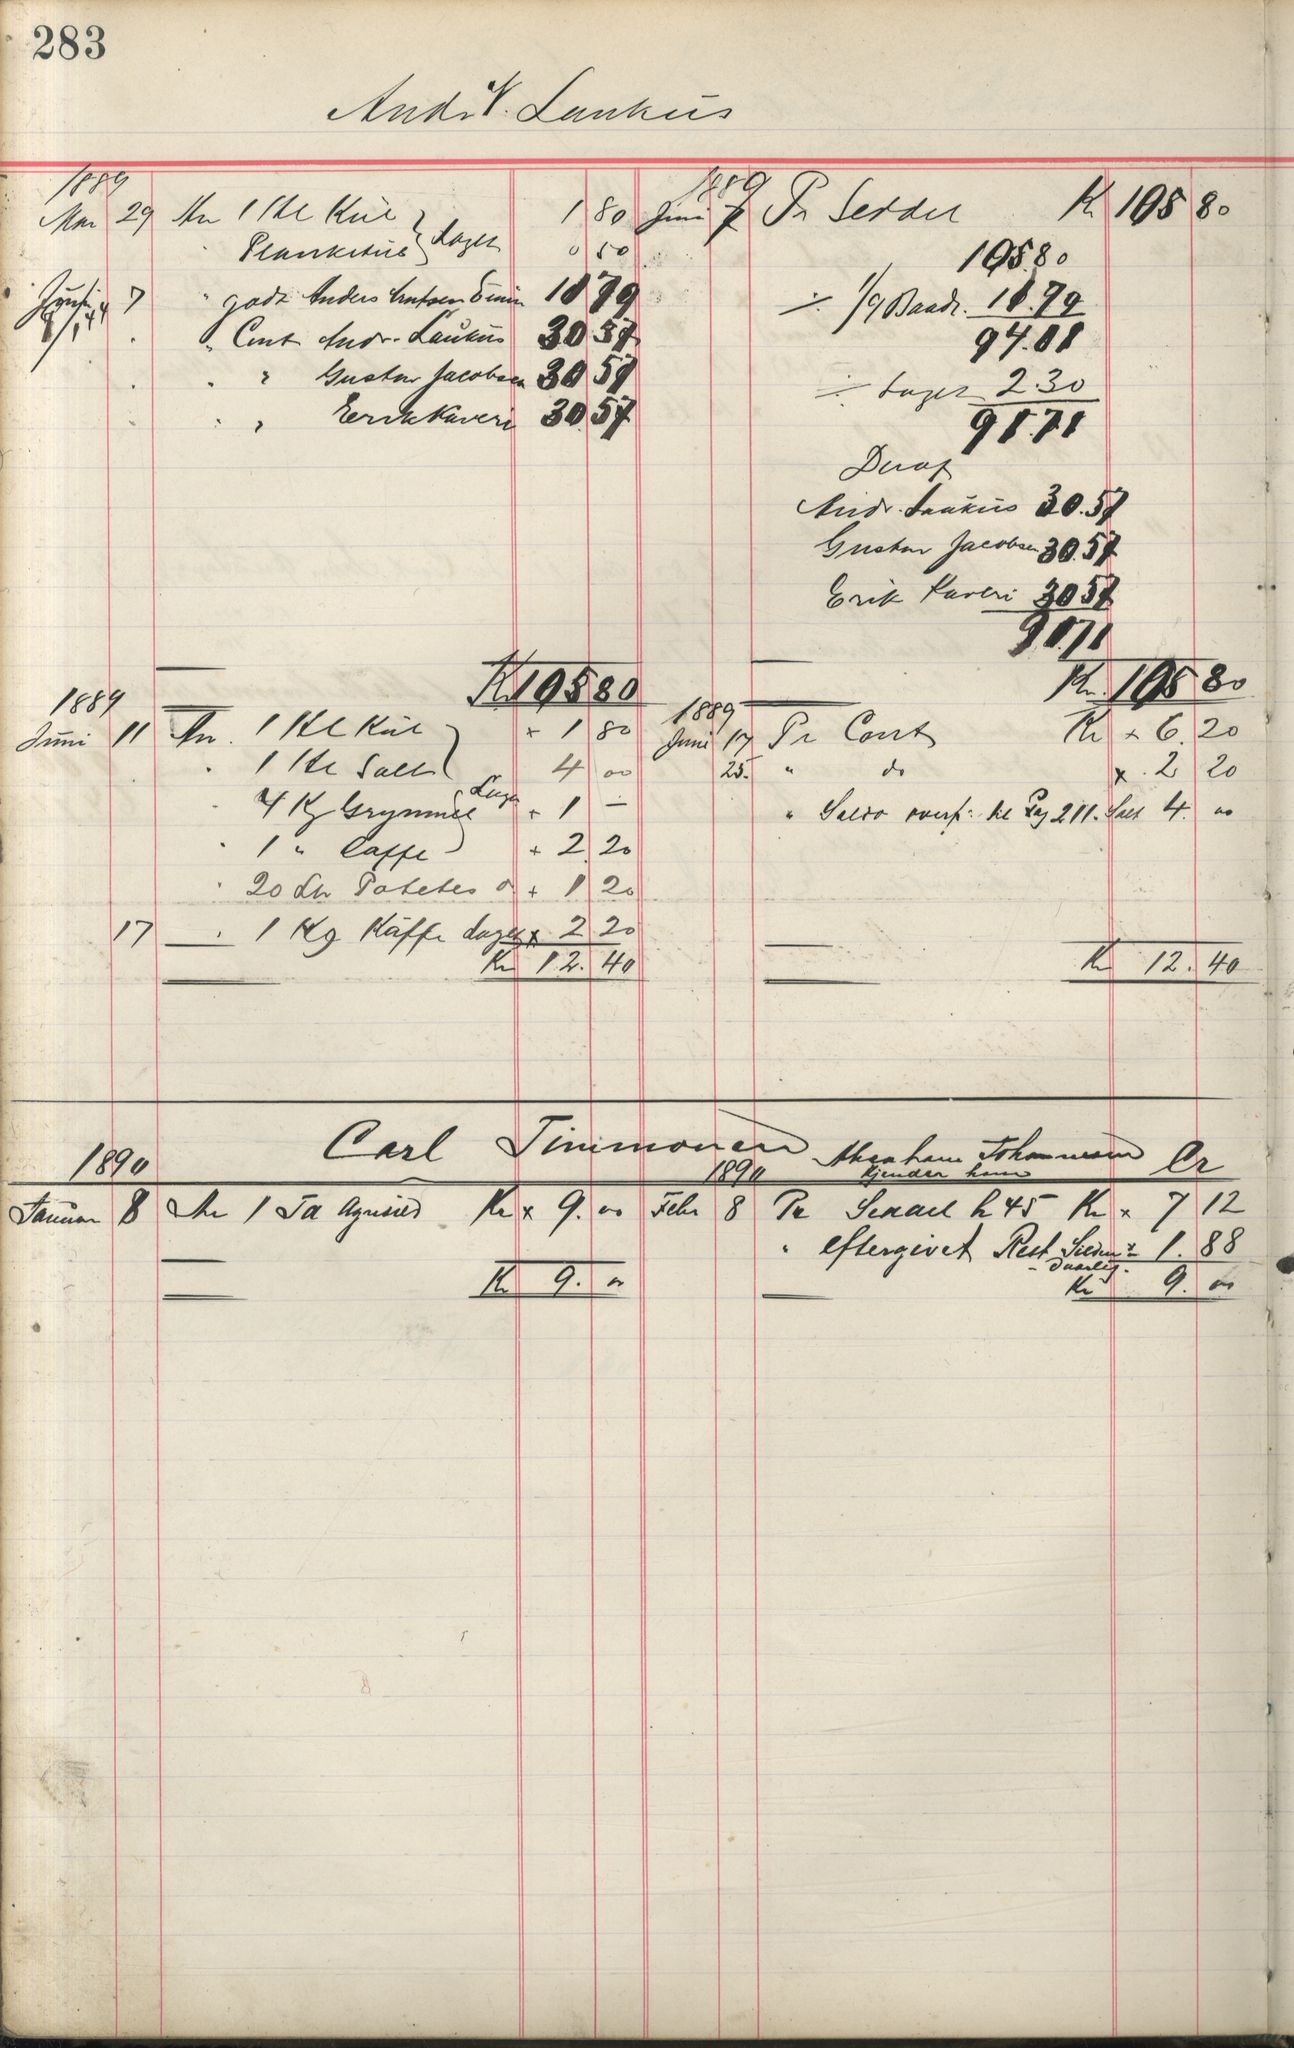 283
Andr. Laukus
1889
Mai 29 An 1 Hl Kul 1 80
" } Lager 0 50
Juni 7 " godt Anders 11 79
" Cont Andr. Laukus 30 57
" " Gustav Jacobsen 30 57
" " Erik Kaveri 30 57
Kr 105 80
1889
Juni 7 Pr Seddel Kr 105 80
105 80
÷ 1/9 Baadl. 11.79
94.01
÷ Lager 2 30
91.71
Deraf
Andr. Laukus 30.57
Gustav Jacobsen 30.57
Erik Kaveri 30 57
91.71
Kr. 105 80
1889
Juni 11 An 1 Hl Kul × 1 80
" 1 Hl Salt 4 00
" 4 Kg Grynmel } Lager × 1 –
" 1 " Caffe × 2 20
" 20 Ltr Potetes × 1 20
17 " 1 Kg Kaffe Lager × 2 20
Kr 12. 40
1889
Juni 17 Pr Cont Kr × 6. 20
25. " do × 2 20
" Saldo overf: til Pag 211. Salt 4. 00
Kr 12. 40
Carl Timmonen
Abraham Johannesen
kjender ham
Cr
1890
Januar 8 An 1 Td Agnsild Kr × 9. 00
Kr 9. 00
1890
Febr 8 Pr h 45 Kr × 7 12
" eftergivet Rest Silden 1. 88
daarlig.
Kr 9. 00